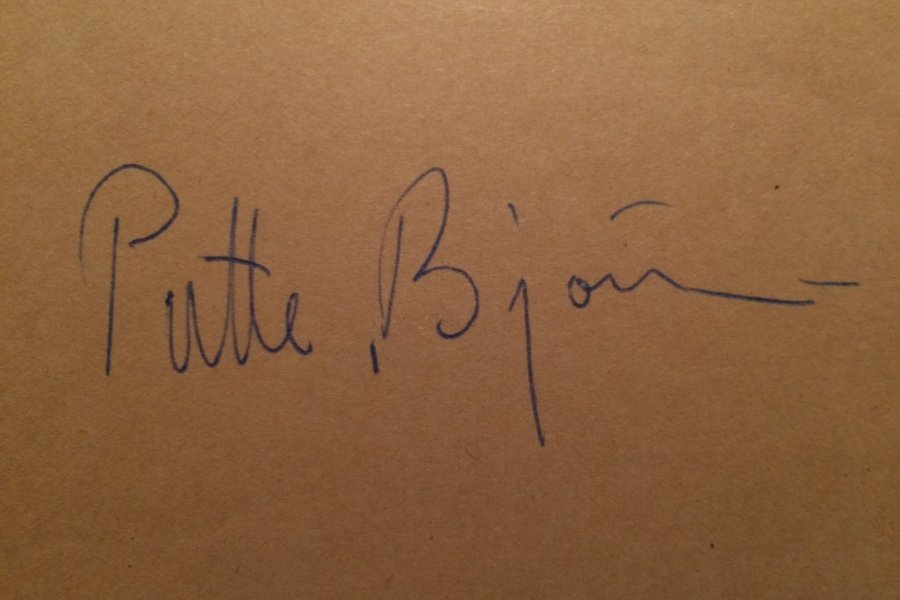 Putte Björn